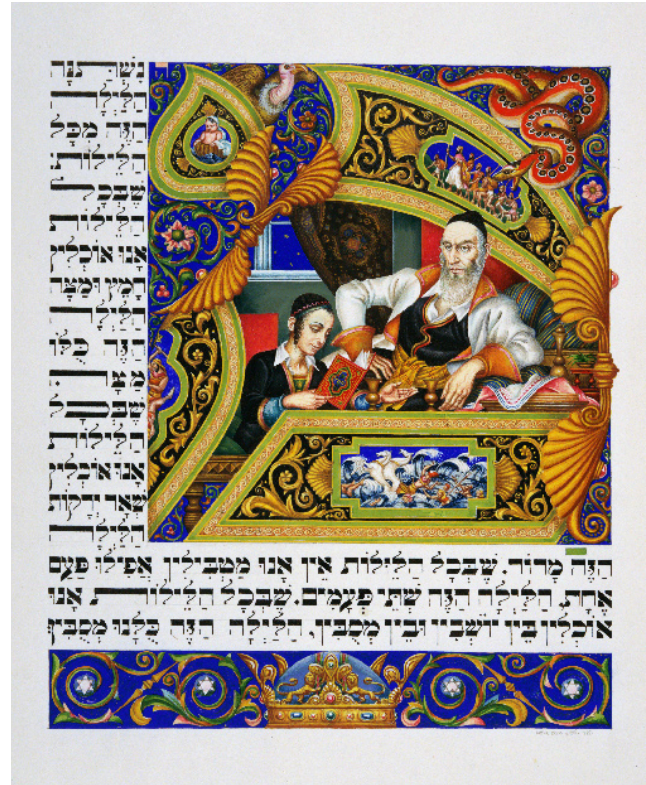 נִּשְׁתַּנָּה
הַלַּיְלָה
הַזֶּה מִכָּל
הַלֵּילוֹת:
שֶׁבְּכָל
הַלֵּילוֹת
אָנוּ אוֹכְלִין
חָמֵץ וּמַצָּה
הַלַּיְלָה
הַזֶּה כֻּלּוֹ
מַצָּה:
שֶׁבְּכָל
הַלֵּילוֹת
אָנוּ אוֹכְלִין
שְׁאָר יְרָקוֹת
הַלַּיְלָה
הַזֶּה מָרוֹר. שֶׁבְּכָל הַלֵּילוֹת אֵין אָנוּ מַטְבִּילִין אֲפִילוּ פַּעַם
אֶחָת, הַלַּיְלָה הַזֶּה שְׁתֵּי פְעָמִים. שֶׁבְּכָל הַלֵּילוֹת אָנוּ
אוֹכְלִין בֵּין יוֹשְׁבִין וּבֵין מְסֻבִּין, הַלַּיְלָה הַזֶּה כֻּלָּנוּ מְסֻבִּין